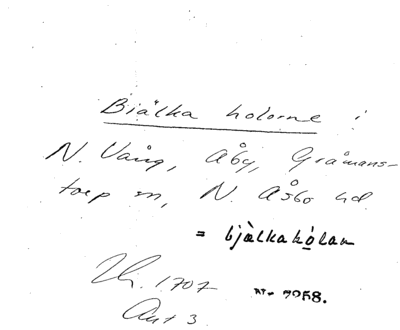 Biälka holorne i
N. Vång, Åby, Gråmans-
torp sn, N. Åsbo hd.
= bjälkahólan
1707 Nr 7958.
Akt 3